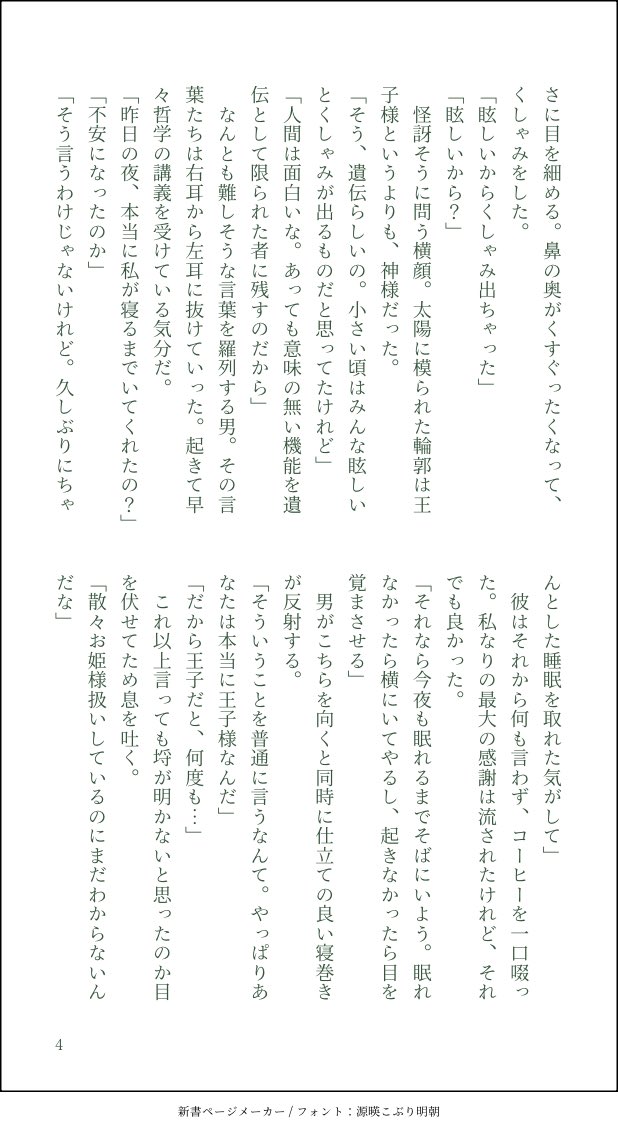 さに目を細める。鼻の奥がくすぐったくなって、
くしゃみをした。
「眩しいからくしゃみ出ちゃった」
「眩しいから？」
　怪訝そうに問う横顔。太陽に模られた輪郭は王
子様というよりも、神様だった。
「そう、遺伝らしいの。小さい頃はみんな眩しい
とくしゃみが出るものだと思ってたけれど」
「人間は面白いな。あっても意味の無い機能を遺
伝として限られた者に残すのだから」
　なんとも難しそうな言葉を羅列する男。その言
葉たちは右耳から左耳に抜けていった。起きて早
々哲学の講義を受けている気分だ。
「昨日の夜、本当に私が寝るまでいてくれたの？」
「不安になったのか」
「そう言うわけじゃないけれど。久しぶりにちゃ
んとした睡眠を取れた気がして」
　彼はそれから何も言わず、コーヒーを一口啜っ
た。私なりの最大の感謝は流されたけれど、それ
でも良かった。
「それなら今夜も眠れるまでそばにいよう。眠れ
なかったら横にいてやるし、起きなかったら目を
覚まさせる」
　男がこちらを向くと同時に仕立ての良い寝巻き
が反射する。
「そういうことを普通に言うなんて。やっぱりあ
なたは本当に王子様なんだ」
「だから王子だと、何度も…」
　これ以上言っても埒が明かないと思ったのか目
を伏せてため息を吐く。
「散々お姫様扱いしているのにまだわからないん
だな」
4
新書ページメーカー / フォント：源暎こぶり明朝